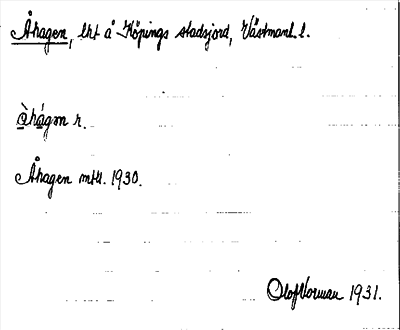 Åhagen, lht å Köpings stadsjord, Västmanl. l.
àhágən r.
Åhagen mtl. 1930.
Olof Norman 1931.